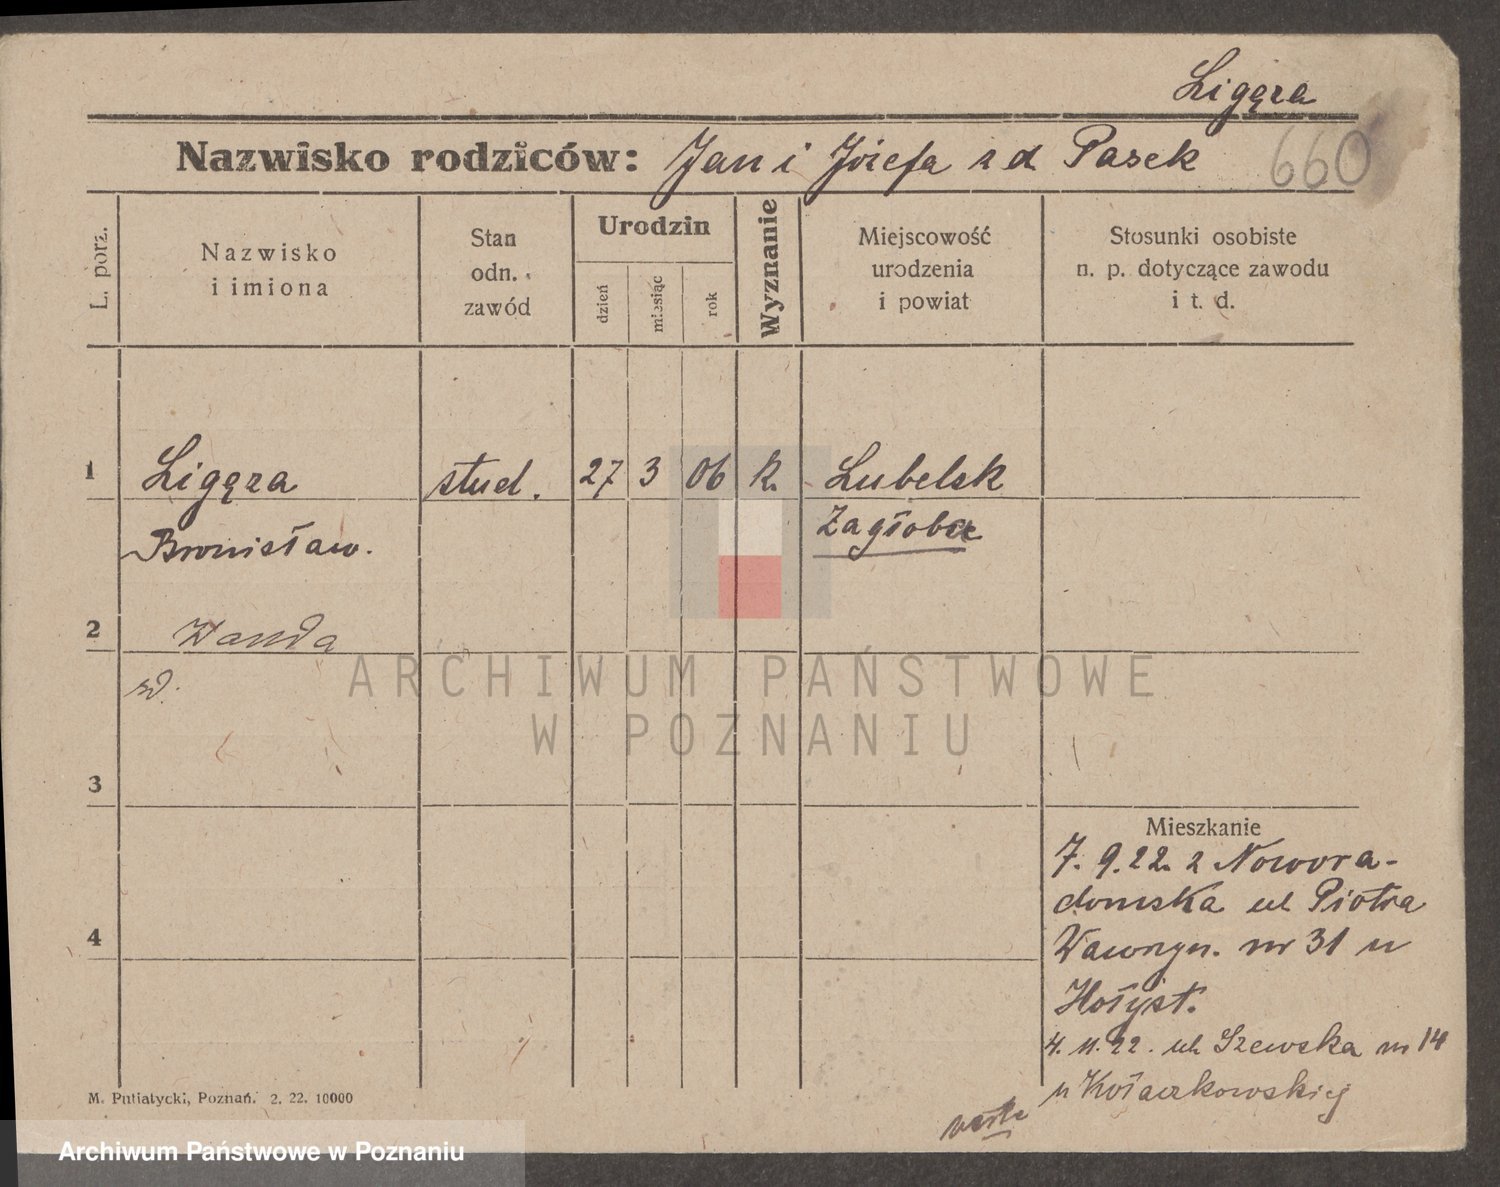 Ligęza
Nazwisko rodziców: Jan i Józefa z d Pasek 660
L. porz.
Nazwisko
i imiona
Stan
odn.
zawód
Urodzin
dzień
miesiąc
rok
Wyznanie
Miejscowość
urodzenia
i powiat
Stosunki osobiste
n. p. dotyczące zawodu
i t. d.
1 Ligęza stud. 27 3 06 k. Lubelsk
Bronisław. Zagłoba
2 Wanda
zd.
ARCHIWUM PAŃSTWOWE
W POZNANIU
3
Mieszkanie
7. 9.22. z Nowora-
domska ul Piotra
4 Wawrzyn. nr 31 u
Hołyst.
4. 11. 22. ul. Szewska nr 14
u Kołaczkowskiej
M. Putiatycki, Poznań. 2. 22. 10000
Archiwum Państwowe w Poznaniu